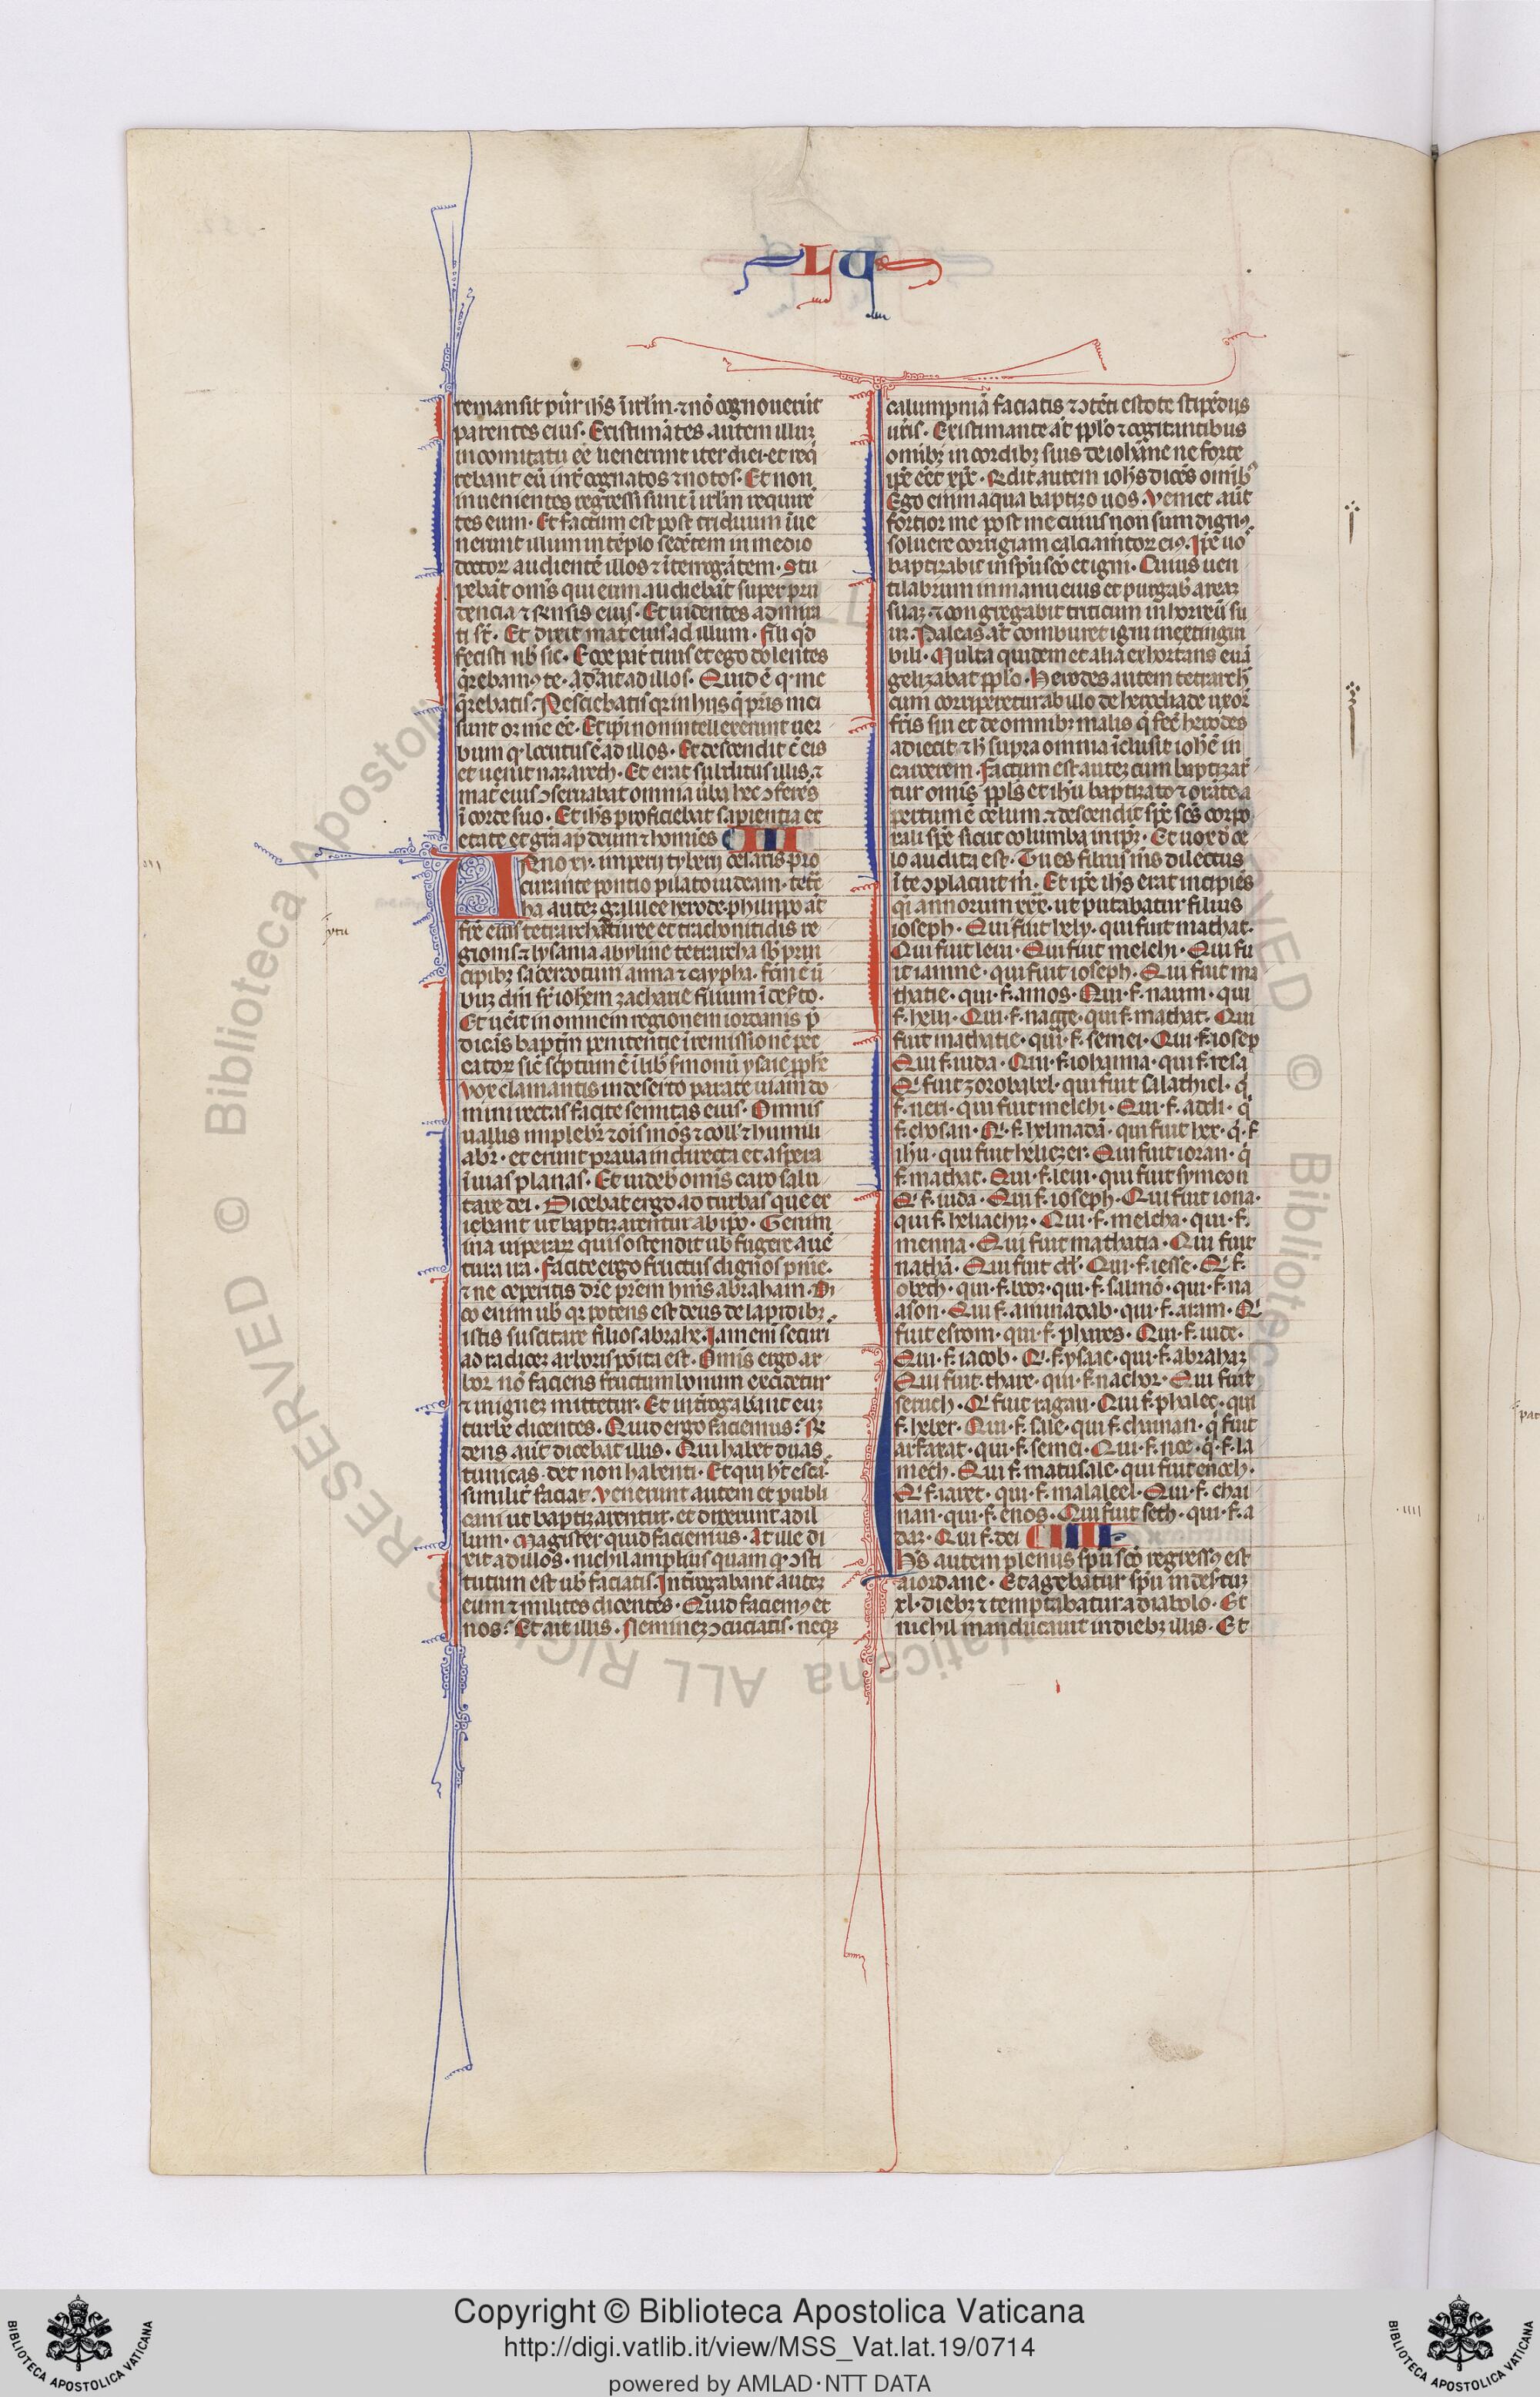 LU
remansit puer ihs ī irlm· ⁊ nō cognouerūt
parentes eius· Existimātes autem illuꝫ
in comitatu eē uenerunt iter diei· et req̄
rebant eū int̄ cognatos ⁊ notos· Et non
inuenientes regressi sunt ī irlm require
tes eum· Et factum est post triduum īue
nerunt illum in tēplo sedētem in medio
doctoꝝ audientē illos ⁊ īterrogātem· Stu
pebāt omīs qui eum audiebāt super pru
dencia ⁊ responsis eius· Et uidentes admira
ti sūt· Et dixit mat̄ eius ad illum· Fili qͥd
fecisti nob̄ sic· Ecce pat̄ tuus et ego dolentes
q̄rebamꝰ te· Ad̄ ait ad illos· Quid ē qꝫ me
q̄rebatis· Nesciebatis qꝛ in hijs q̄ pr̄is mei
sunt oꝫ me eē· Et ip̄i non intellexerunt uer
bum qꝫ locutus ē ad illos· Et descendit c̄ eis
et uenit nazareth· Et erat subditus illis· ⁊
mat̄ eius ꝯseruabat omnia ūba hec ꝯferēs
ī corde suo· Et ihs proficiebat sapientia et
etate et gr̄a ap̄ deum ⁊ homīes III
Anno xv· imperij tyberij cesaris pro
curante pontio pilato iudeam· tetr̄
cha auteꝫ galilee herode· philippo aūt
fr̄e eius tetrarcha ituree et traconitidis re
gionis· ⁊ lysania abyline tetrarcha sb̄ prin
cipibꝫ sacerdotum anna ⁊ caypha· fcm̄ ē ū
buꝫ dn̄i sr̄ ioh̄em zacharie filium ī desꝰto·
Et uēit in omnem regionem iordanis p̄
dicās baptm̄ penitentie ī remissionē pec
catoꝝ sic̄ scriptum ē ī lib̄ sermonū ysaie ꝓph̄e
Vox clamantis in deserto parate uiam do
mini rectas facite semitas eius· Omnis
uallis implebit̄ ⁊ oīs mōs ⁊ coll̄ ⁊ humili
abit̄· et erunt praua in directa et aspera
ī uias planas· Et uideb̄ omīs caro salu
tare dei· Dicebat ergo ad turbas que ex
iebant ut baptizarentur ab ip̄o· Genim
ina uiperaꝝ quis ostendit uob̄ fugere a uē
tura ira· Facite ergo fructus dignos pnīe·
⁊ ne ceperitis dic̄e pr̄em hm̄s abraham· Di
co enim uob̄ qꝛ potens est deus de lapidibꝫ
istis suscitare filios abrahe· Iam enī securi
ad radiceꝫ arboris posita est· Omīs ergo ar
bor nō faciens fructum bonum excidetur
⁊ in igneꝫ mittetur· Et int̄rogabāt euꝫ
turbe dicentes· Quid ergo faciemus· Rn̄
dens aūt dicebat illis· Qui habet duas
tunicas· det non habenti· Et qui ht̄ escas
similit̄ faciat· Venerunt autem et publi
cani ut baptizarentur· et dixerunt ad il
lum· Magister quid faciemus· At ille di
xit ad illos· nichil amplius quam qꝫ ꝯsti
tutum est uob̄ faciatis· Int̄rogabant auteꝫ
eum ⁊ milites dicentes· Quid faciemꝰ et
nos· Et ait illis· Nemineꝫ ꝯcuciatis· neqꝫ
calumpniā faciatis ⁊ ꝯtēti estote stipēdijs
ur̄is· Existimante aūt pplo ⁊ cogitantibus
omībꝫ in cordibꝫ suis de iohāne ne forte
ip̄e eēt xp̄c· Rn̄dit autem ioh̄s dicēs omībꝰ
Ego enim aqua baptizo uos· Veniet aūt
fortior me post me cuius non sum dignꝰ
soluere corrigiam calciamtoꝝ eiꝰ· Ip̄e uos
baptizabit in spū sc̄o et igni· Cuius uen
tilabrum in manu eius et purgab̄ areaꝫ
suaꝫ· ⁊ congregabit triticum in horreū su
uꝫ· Paleas aūt comburet igni inextingui
bili· Multa quidem et alia exhortans euā
gelizabat pplo· Herodes autem tetrarch̄
cum corriperetur ab illo de herodiade uxoꝝ
fr̄is sui et de omnibꝫ malis q̄ fec̄ herodes
adiecit· ⁊ h̄ supra omnia īclusit ioh̄ē in
carcerem· Factum est auteꝫ cum baptizar̄
tur omīs ppls et ihū baptizato ⁊ orāte a
pertum ē celum· ⁊ descendit spc̄ sc̄s corpo
rali sp̄e sicut columba in ip̄ꝫ· Et uox d̄ ce
lo audita est· Tu es filius ms̄ dilectus
ī te ꝯplacuit m̄· Et ip̄e ihs erat incipiēs
qͣi annorum xxx· ut putabatur filius
ioseph· Qui fuit hely· qui fuit mathat·
Qui fuit leui· Qui fuit melchi· Qui fu
it iamne· qui fuit ioseph· Qui fuit ma
thatie· qui· f· amos· Qui· f· naum· qui
f· hesli· Qui· f· nagge· qui f· mathat· Qui
fuit mathatie· qui· f· semei· Qui· f· iosep
Qui f· iuda· Qui· f· iohanna· qui f· resa
Qͥ fuit zorobabel· qui fuit salathiel· qͥ
f· neri· qui fuit melchi· Qui· f· addi· qͥ
f· chosan· Qͥ· f· helmadā· qui fuit her· qͥ· f
ihu· qui fuit heliezer· Qui fuit ioram· qͥ
f· mathat· Qui· f· leui· qui fuit symeon
Qͥ f· iuda· Qui f· ioseph· Qui fuit iona·
qui f· heliachiꝫ· Qui· f· melcha· qui· f·
menna· Qui fuit mathatia· Qui fuit
nathā· Qui fuit dd̄· Qui· f· iesse· Qͥ· f·
obeth· qui· f· booz· qui· f· salmō· qui· f· na
ason· Qui f· aminadab· qui· f· aram· Qͥ
fuit esrom· qui· f· phares· Qui· f· iude·
Qui· f· iacob· Qͥ· f· ysaac· qui· f· abrahaꝫ
Qui fuit· thare· qui· f· nachor· Qui fuit
seruch· Qͥ fuit ragau· Qui f· phalec· qui
f· heber· Qui· f· sale· qui f· chainan· qͥ fuit
arfaxat· qui· f· semei· Qui· f· noe· qͥ· f· la
mech· Qui f· matusale· qui fuit enoch·
Qͥ f· iaret· qui· f· malaleel· Qui· f· chai
nan· qui· f· enos· Qui fuit seth· qui· f· a
daꝫ· Qui f· dei IIII
Ihs autem plenus spū sc̄o regressꝰ est
a iordane· Et agebatur spū in desꝰtuꝫ
xl· diebꝫ ⁊ temptabatur a diabolo· Et
nichil manducauit in diebꝫ illis· Et
ytu
IIII
Copyright © Biblioteca Apostolica Vaticana
http://digi.vatlib.it/view/MSS_Vat.lat.19/0714
powered by AMLAD·NTT DATA